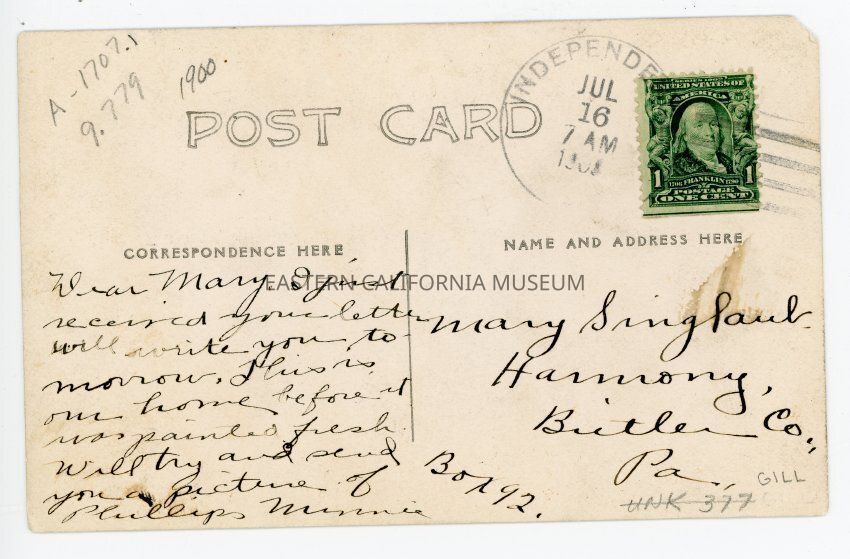 A-1707.1
9.779
1900
POST CARD
INDEPENDE
JUL
16
7 AM
SERIES 1902
UNITED STATES OF
AMERICA
1 1
1706 FRANKLIN 1790
POSTAGE
ONE CENT
CORRESPONDENCE HERE
NAME AND ADDRESS HERE
EASTERN CALIFORNIA MUSEUM
Dear Mary, I just
received your letter
will write you to-
morrow. This is
our home before it
was painted fresh.
Will try and send
you a picture of
Phillips Minnie
Mary Singlaub.
Harmony,
Butler Co.,
Pa.,
Box 92.
GILL
UNK 377